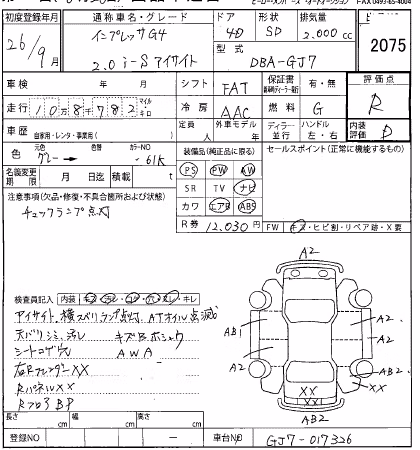 初度登録年月
26/9月
通称車名・グレード
インプレッサG4
2.0 i-S アイサイト
ドア 形状 排気量
4D SD 2.000 cc
型式
DBA-GJ7
2075
車検 年 月
シフト FAT
保証書 有・無
評価点
R
走行 108782 マイル キロ
冷房 AAC
燃料 G
車歴 自家用・レンタ・事業用
定員 人
外車モデル 年
ディーラー 並行
ハンドル 左・右
内装評価 D
色 元色 グレー → 色替 カラーNO 61K
装備品(純正品に限る)
セールスポイント(正常に機能するもの)
PS PW AW
名義変更期限 月 日迄 積載 t
SR TV ナビ
カワ エアB ABS
注意事項(欠品・修復・不具合箇所および状態)
チェックランプ点灯
R券 12,030 円
FW キズ・ヒビ割・リペア跡・X要
検査員記入 内装 キズ 汚レ コゲ 穴 スレ キレ
アイサイト、横スベリランプ点灯、ATオイル点滅
天バリシミ、汚レ キズB.ホシュウ
シートコゲ穴 AWA
右RフェンダーXX
RパネルXX
RフロアBP
A2
A2
AB1
A2
A2
XX
XX
A2
AB2
長さ cm 幅 cm 高さ cm
登録NO ー
車台NO GJ7-017326